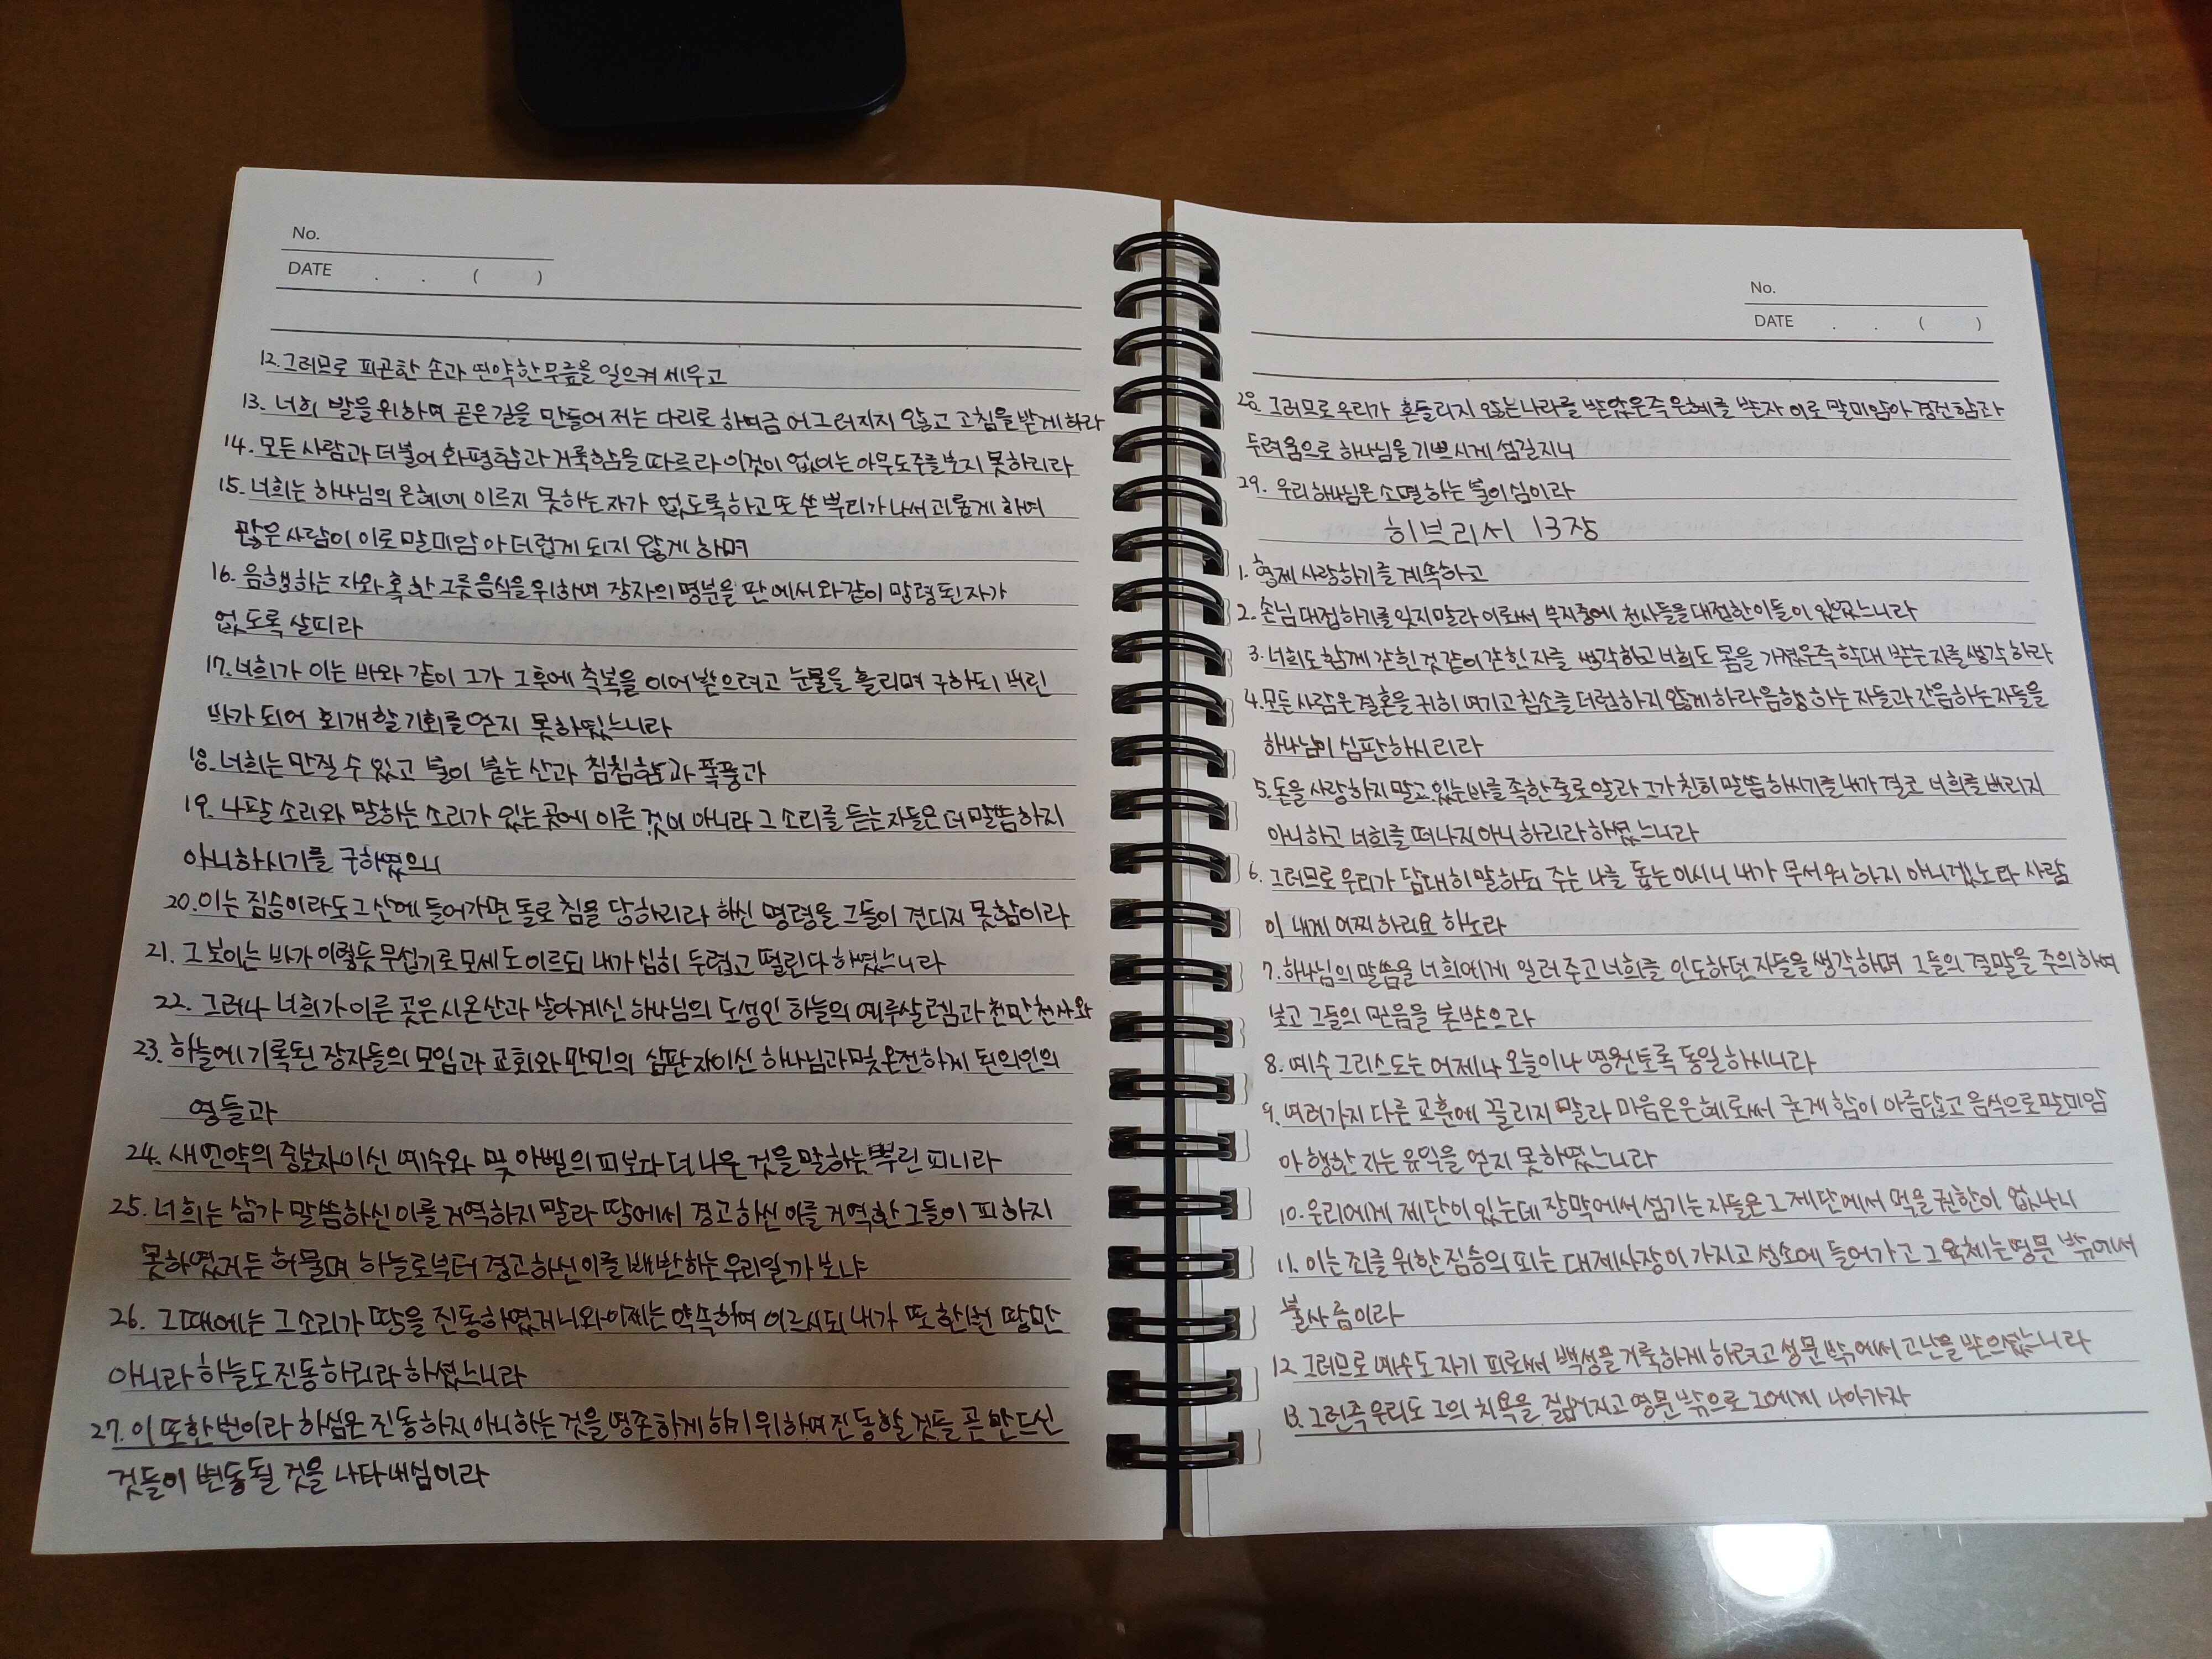 No.
DATE . . ( )
12. 그러므로 피곤한 손과 연약한 무릎을 일으켜 세우고
13. 너희 발을 위하여 곧은 길을 만들어 저는 다리로 하여금 어그러지지 않고 고침을 받게 하라
14. 모든 사람과 더불어 화평함과 거룩함을 따르라 이것이 없이는 아무도 주를 보지 못하리라
15. 너희는 하나님의 은혜에 이르지 못하는 자가 없도록 하고 또 쓴 뿌리가 나서 괴롭게 하여
많은 사람이 이로 말미암아 더럽게 되지 않게 하며
16. 음행하는 자와 혹 한 그릇 음식을 위하여 장자의 명분을 판 에서와 같이 망령된 자가
없도록 살피라
17. 너희가 아는 바와 같이 그가 그 후에 축복을 이어받으려고 눈물을 흘리며 구하되 버린
바가 되어 회개할 기회를 얻지 못하였느니라
18. 너희는 만질 수 있고 불이 붙는 산과 침침함과 폭풍과
19. 나팔 소리와 말하는 소리가 있는 곳에 이른 것이 아니라 그 소리를 듣는 자들은 더 말씀하지
아니하시기를 구하였으니
20. 이는 짐승이라도 그 산에 들어가면 돌로 침을 당하리라 하신 명령을 그들이 견디지 못함이라
21. 그 보이는 바가 이렇듯 무섭기로 모세도 이르되 내가 심히 두렵고 떨린다 하였느니라
22. 그러나 너희가 이른 곳은 시온 산과 살아계신 하나님의 도성인 하늘의 예루살렘과 천만 천사와
23. 하늘에 기록된 장자들의 모임과 교회와 만민의 심판자이신 하나님과 및 온전하게 된 의인의
영들과
24. 새 언약의 중보자이신 예수와 및 아벨의 피보다 더 나은 것을 말하는 뿌린 피니라
25. 너희는 삼가 말씀하신 이를 거역하지 말라 땅에서 경고하신 이를 거역한 그들이 피하지
못하였거든 하물며 하늘로부터 경고하신 이를 배반하는 우리일까 보냐
26. 그 때에는 그 소리가 땅을 진동하였거니와 이제는 약속하여 이르시되 내가 또 한번 땅만
아니라 하늘도 진동하리라 하셨느니라
27. 이 또 한 번이라 하심은 진동하지 아니하는 것을 영존하게 하기 위하여 진동할 것들 곧 만드신
것들이 변동될 것을 나타내심이라
No.
DATE . . ( )
28. 그러므로 우리가 흔들리지 않는 나라를 받았은즉 은혜를 받자 이로 말미암아 경건함과
두려움으로 하나님을 기쁘시게 섬길지니
29. 우리 하나님은 소멸하는 불이심이라
히브리서 13장
1. 형제 사랑하기를 계속하고
2. 손님 대접하기를 잊지 말라 이로써 부지중에 천사들을 대접한 이들이 있었느니라
3. 너희도 함께 갇힌 것 같이 갇힌 자를 생각하고 너희도 몸을 가졌은즉 학대 받는 자를 생각하라
4. 모든 사람은 결혼을 귀히 여기고 침소를 더럽히지 않게 하라 음행하는 자들과 간음하는 자들을
하나님이 심판하시리라
5. 돈을 사랑하지 말고 있는 바를 족한 줄로 알라 그가 친히 말씀하시기를 내가 결코 너희를 버리지
아니하고 너희를 떠나지 아니하리라 하셨느니라
6. 그러므로 우리가 담대히 말하되 주는 나를 돕는 이시니 내가 무서워하지 아니하겠노라 사람
이 내게 어찌하리요 하노라
7. 하나님의 말씀을 너희에게 일러 주고 너희를 인도하던 자들을 생각하며 그들의 결말을 주의하여
보고 그들의 믿음을 본받으라
8. 예수 그리스도는 어제나 오늘이나 영원토록 동일하시니라
9. 여러가지 다른 교훈에 끌리지 말라 마음은 은혜로써 굳게 함이 아름답고 음식으로 말미암
아 행한 자는 유익을 얻지 못하였느니라
10. 우리에게 제단이 있는데 장막에서 섬기는 자들은 그 제단에서 먹을 권한이 없나니
11. 이는 죄를 위한 짐승의 피는 대제사장이 가지고 성소에 들어가고 그 육체는 영문 밖에서
불사름이라
12. 그러므로 예수도 자기 피로써 백성을 거룩하게 하려고 성문 밖에서 고난을 받으셨느니라
13. 그런즉 우리도 그의 치욕을 짊어지고 영문 밖으로 그에게 나아가자